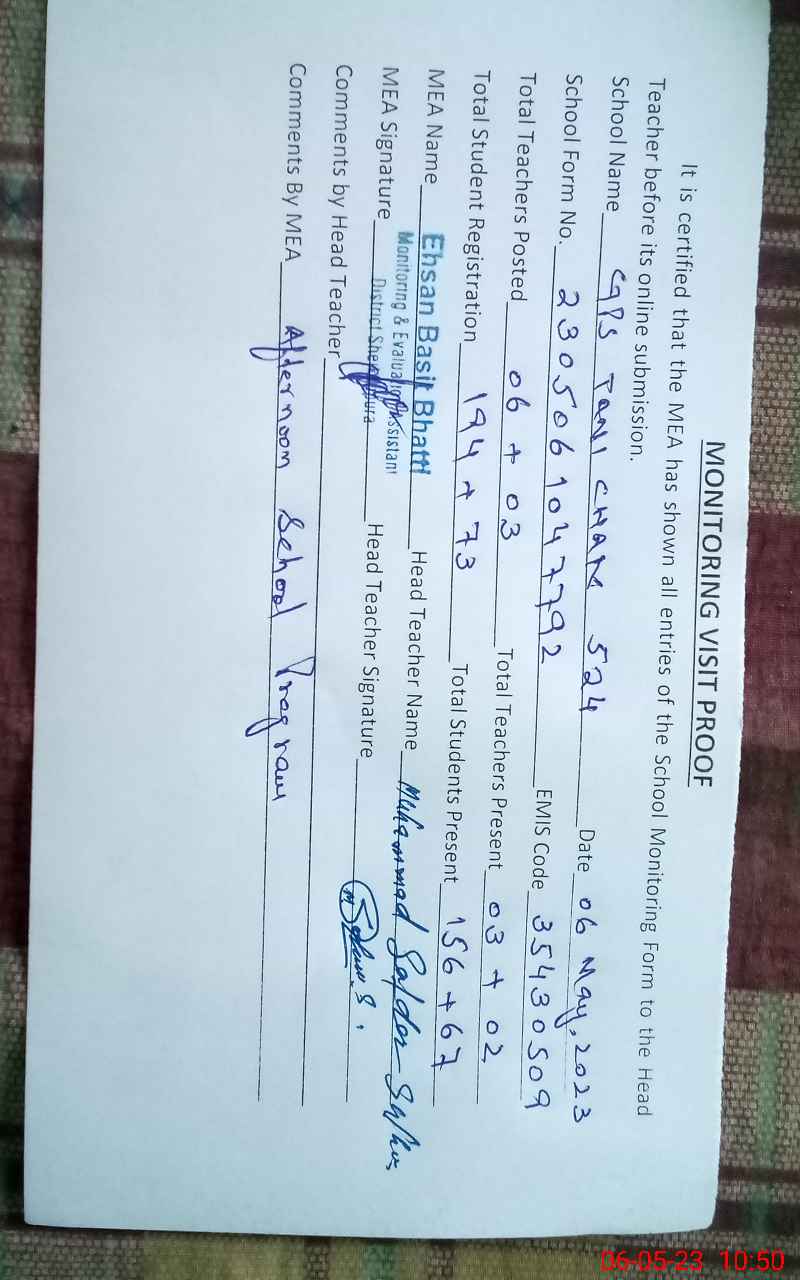 MONITORING VISIT PROOF
It is certified that the MEA has shown all entries of the School Monitoring Form to the Head
Teacher before its online submission.
School Name GPS TANI CHAK 524 Date 06 May, 2023
School Form No. 2305061047792 EMIS Code 35430509
Total Teachers Posted 06 + 03 Total Teachers Present 03 + 02
Total Student Registration 194 + 73 Total Students Present 156 + 67
MEA Name Ehsan Basit Bhatti Head Teacher Name Muhammad Safdar
Monitoring & Evaluation Assistant
MEA Signature District Head Teacher Signature
Comments by Head Teacher
Comments By MEA Afternoon School Program
06-05-23 10:50